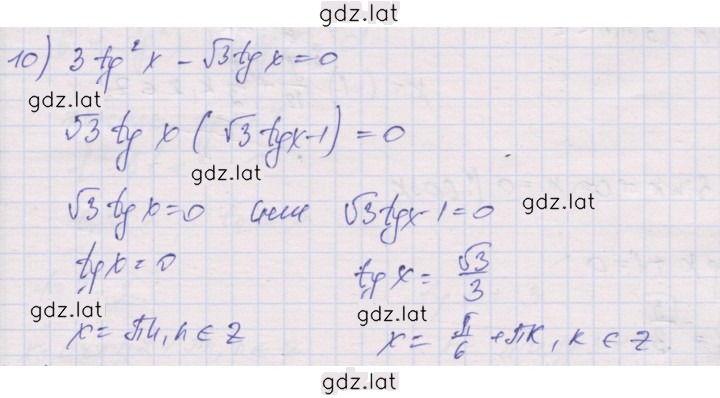 gdz.lat
10) 3 tg² x - √3 tg x = 0
gdz.lat
√3 tg x ( √3 tg x - 1 ) = 0
gdz.lat
√3 tg x = 0 или √3 tg x - 1 = 0 gdz.lat
tg x = 0 tg x = √3/3
gdz.lat gdz.lat
x = πn, n ∈ Z x = π/6 + πk, k ∈ Z
gdz.lat